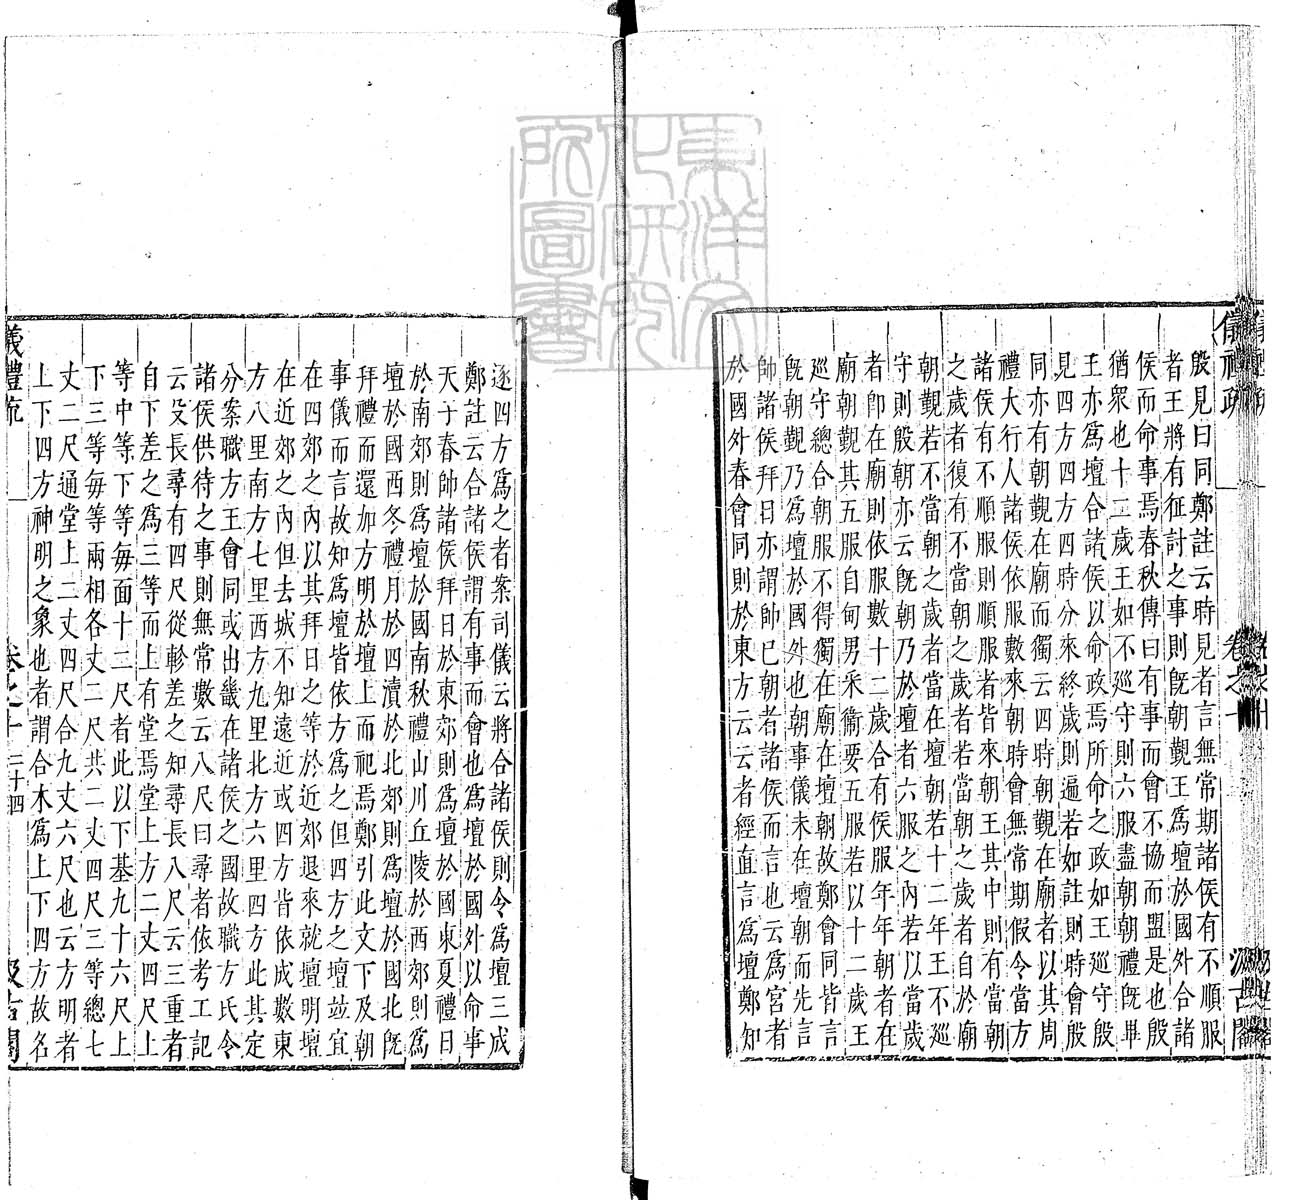 殷見曰同鄭註云時見者言無常期諸侯有不順服
者王將有征討之事則既朝覲王爲壇於國外合諸
侯而命事焉春秋傳曰有事而會不協而盟是也殷
猶衆也十二歲王如不巡守則六服盡朝朝禮既畢
王亦爲壇合諸侯以命政焉所命之政如王巡守殷
見四方四方四時分來終歲則遍若如註則時會殷
同亦有朝覲在廟而獨云四時朝覲在廟者以其周
禮大行人諸侯依服數來朝時會無常期假令當方
諸侯有不順服則順服者皆來朝王其中則有當朝
之歲者復有不當朝之歲者若當朝之歲者自於廟
朝覲若不當朝之歲者當在壇朝若十二年王不巡
守則殷朝亦云既朝乃於壇者六服之內若以當歲
者卽在廟則依服數十二歲合有侯服年年朝者在
廟朝覲其五服自甸男采衞要五服若以十二歲王
巡守總合朝服不得獨在廟在壇朝故鄭會同皆言
既朝覲乃爲壇於國外也朝事儀未在壇朝而先言
帥諸侯拜日亦謂帥已朝者諸侯而言也云爲宮者
於國外春會同則於東方云云者經直言爲壇鄭知
逐四方爲之者案司儀云將合諸侯則令爲壇三成
鄭註云合諸侯謂有事而會也爲壇於國外以命事
天子春帥諸侯拜日於東郊則爲壇於國東夏禮日
於南郊則爲壇於國南秋禮山川丘陵於西郊則爲
壇於國西冬禮月於四瀆於北郊則爲壇於國北既
拜禮而還加方明於壇上而祀焉鄭引此文下及朝
事儀而言故知爲壇皆依方爲之但四方之壇竝宜
在四郊之內以其拜日之等於近郊退來就壇明壇
在近郊之內但去城不知遠近或四方皆依成數東
方八里南方七里西方九里北方六里四方此其定
分案職方王會同或出畿在諸侯之國故職方氏令
諸侯供待之事則無常數云八尺曰尋者依考工記
云殳長尋有四尺從軫差之知尋長八尺云三重者
自下差之爲三等而上有堂焉堂上方二丈四尺上
等中等下等每面十二尺者此以下基九十六尺上
下三等每等兩相各丈二尺共二丈四尺三等總七
丈二尺通堂上二丈四尺合九丈六尺也云方明者
上下四方神明之象也者謂合木爲上下四方故名
儀禮疏 卷之十 二十四 汲古閣